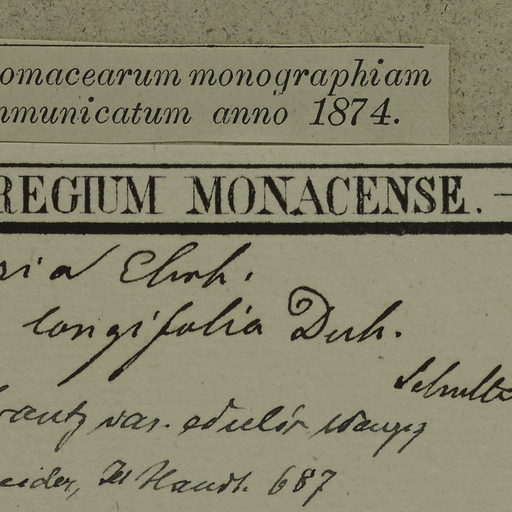 omacearum monographiam
mmunicatum anno 1874.
REGIUM MONACENSE. —
sia Ehrh.
longifolia Duh.
Schultz
rantz var. edulis Wenzg
eider, Ill Handb. 687